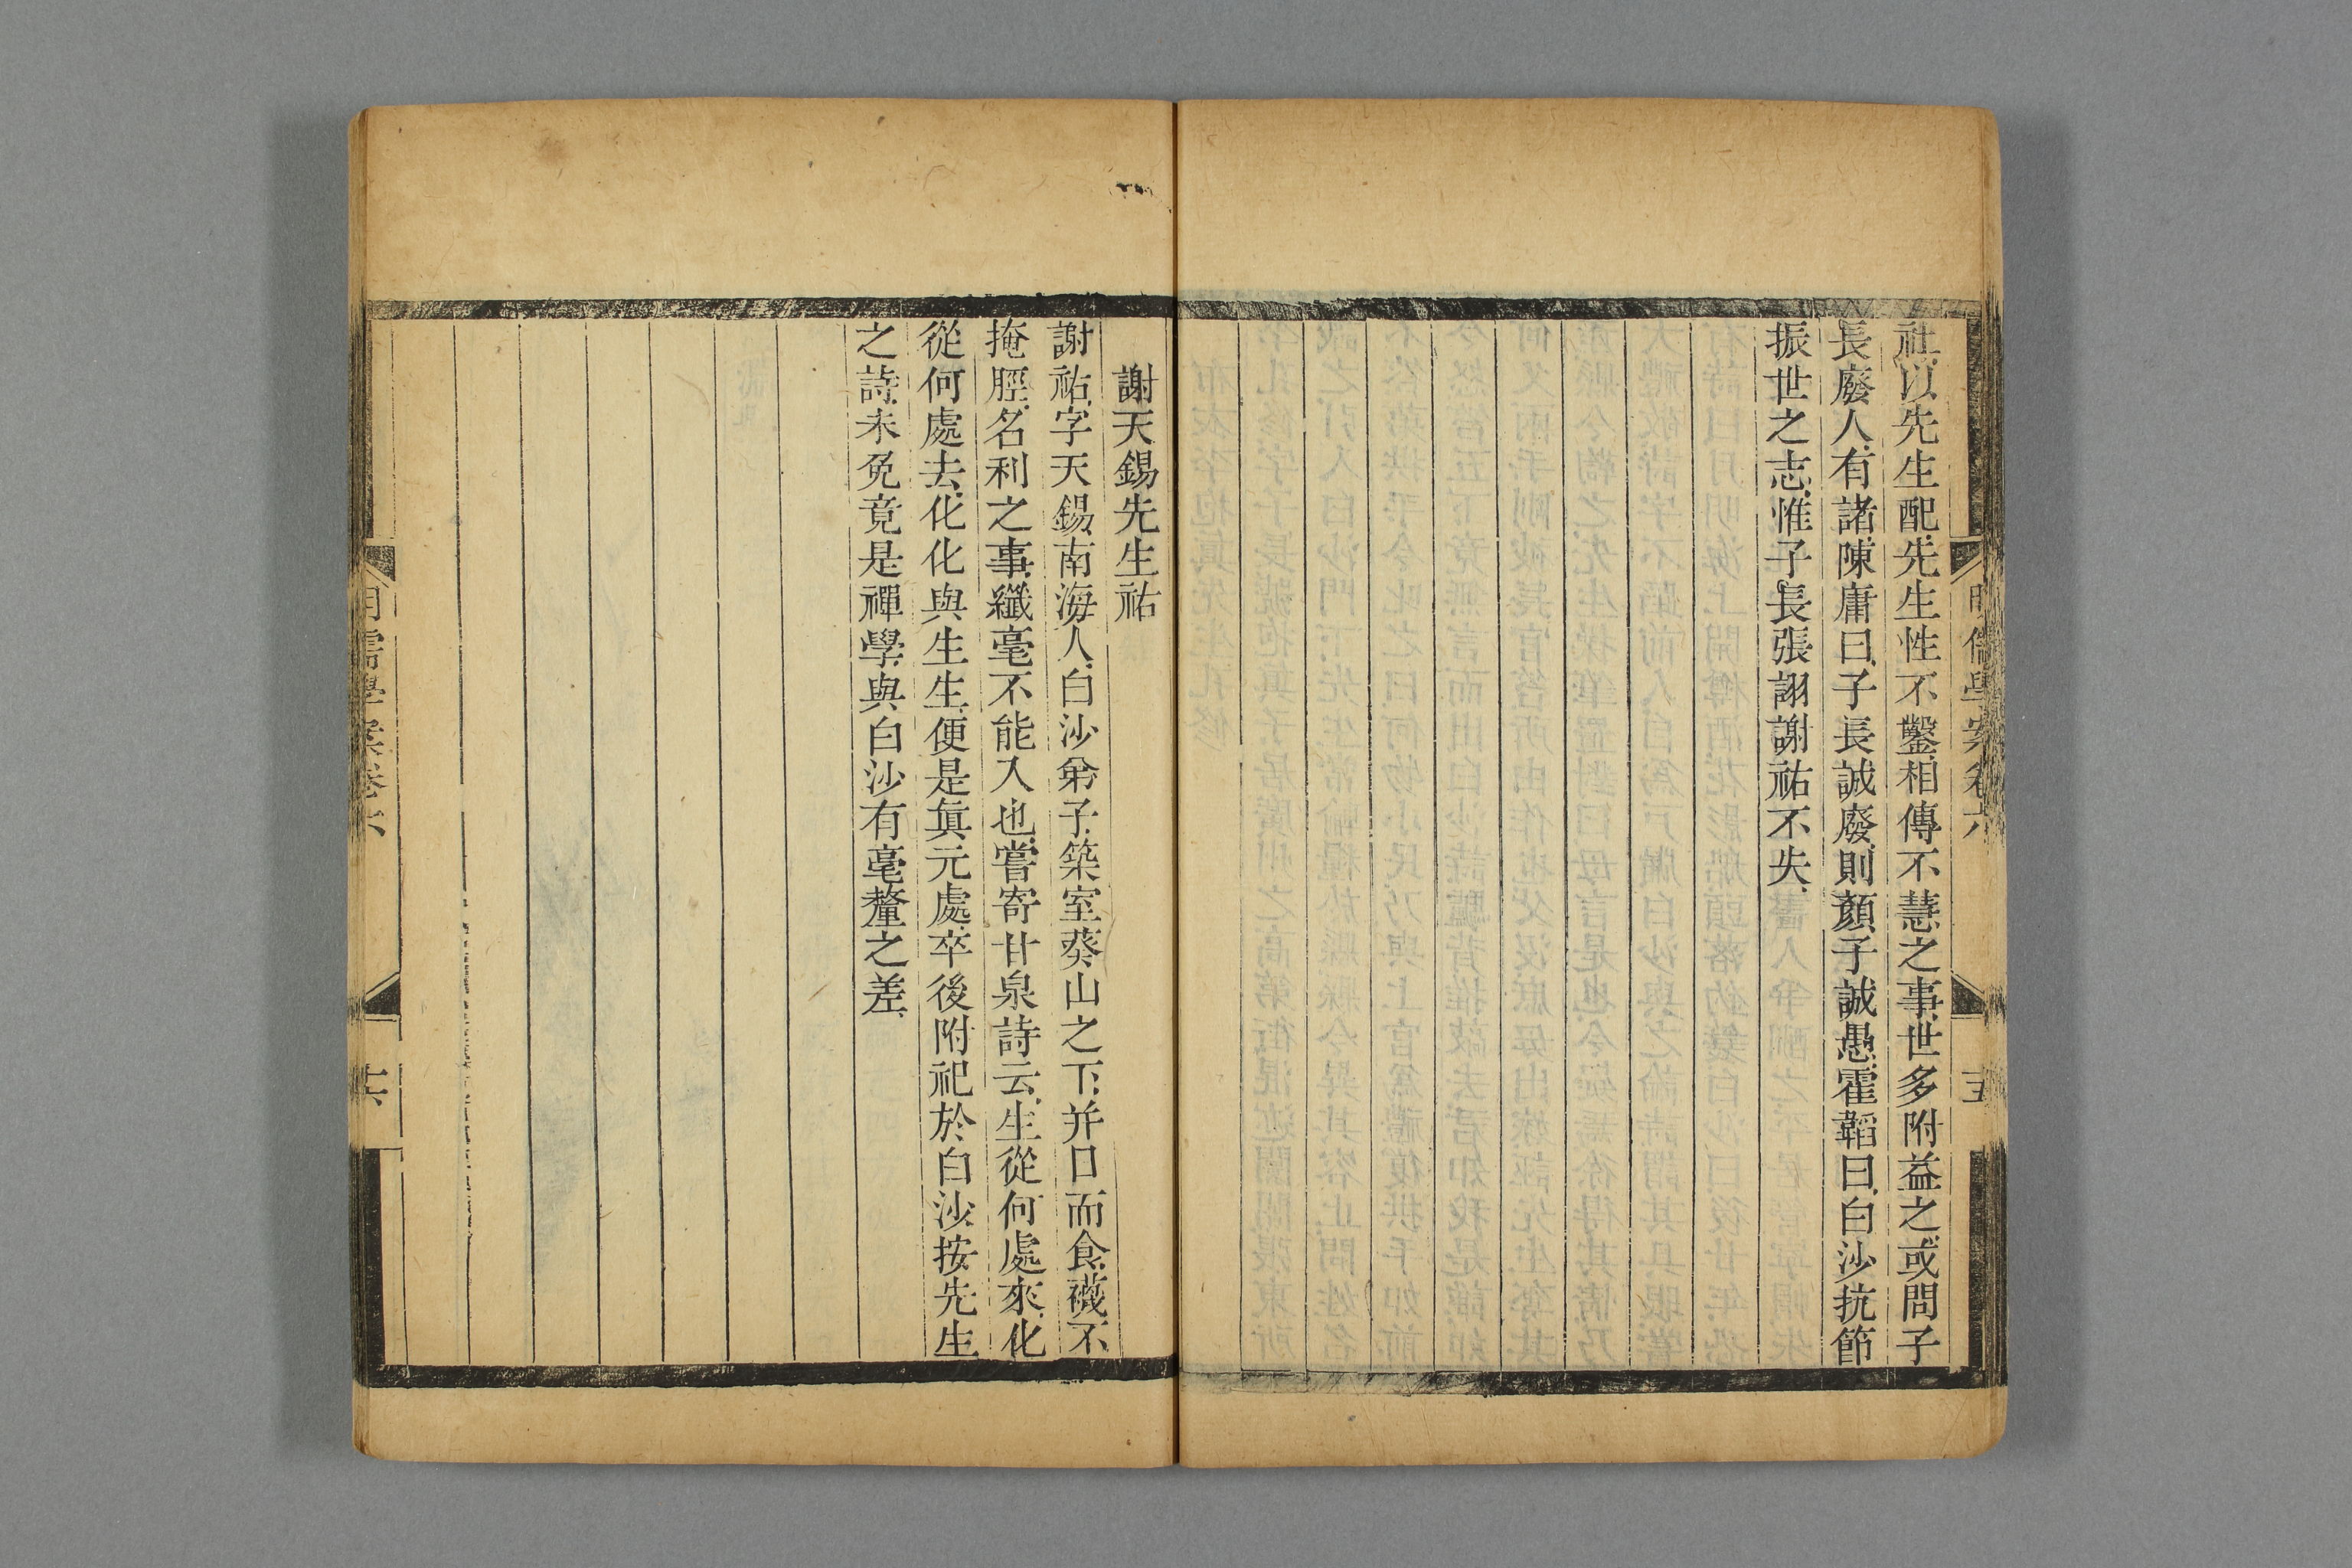 社以先生配先生性不鑿相傳不慧之事世多附益之或問子
長廢人有諸陳庸曰子長誠廢則顏子誠愚霍韜曰白沙抗節
振世之志惟子長張詡謝祐不失
謝天錫先生祐
謝祐字天錫南海人白沙弟子築室葵山之下并日而食襪不
掩脛名利之事纖毫不能入也嘗寄甘泉詩云生從何處來化
從何處去化化與生生便是眞元處卒後附祀於白沙按先生
之詩未免竟是禪學與白沙有毫釐之差
明儒學案卷六